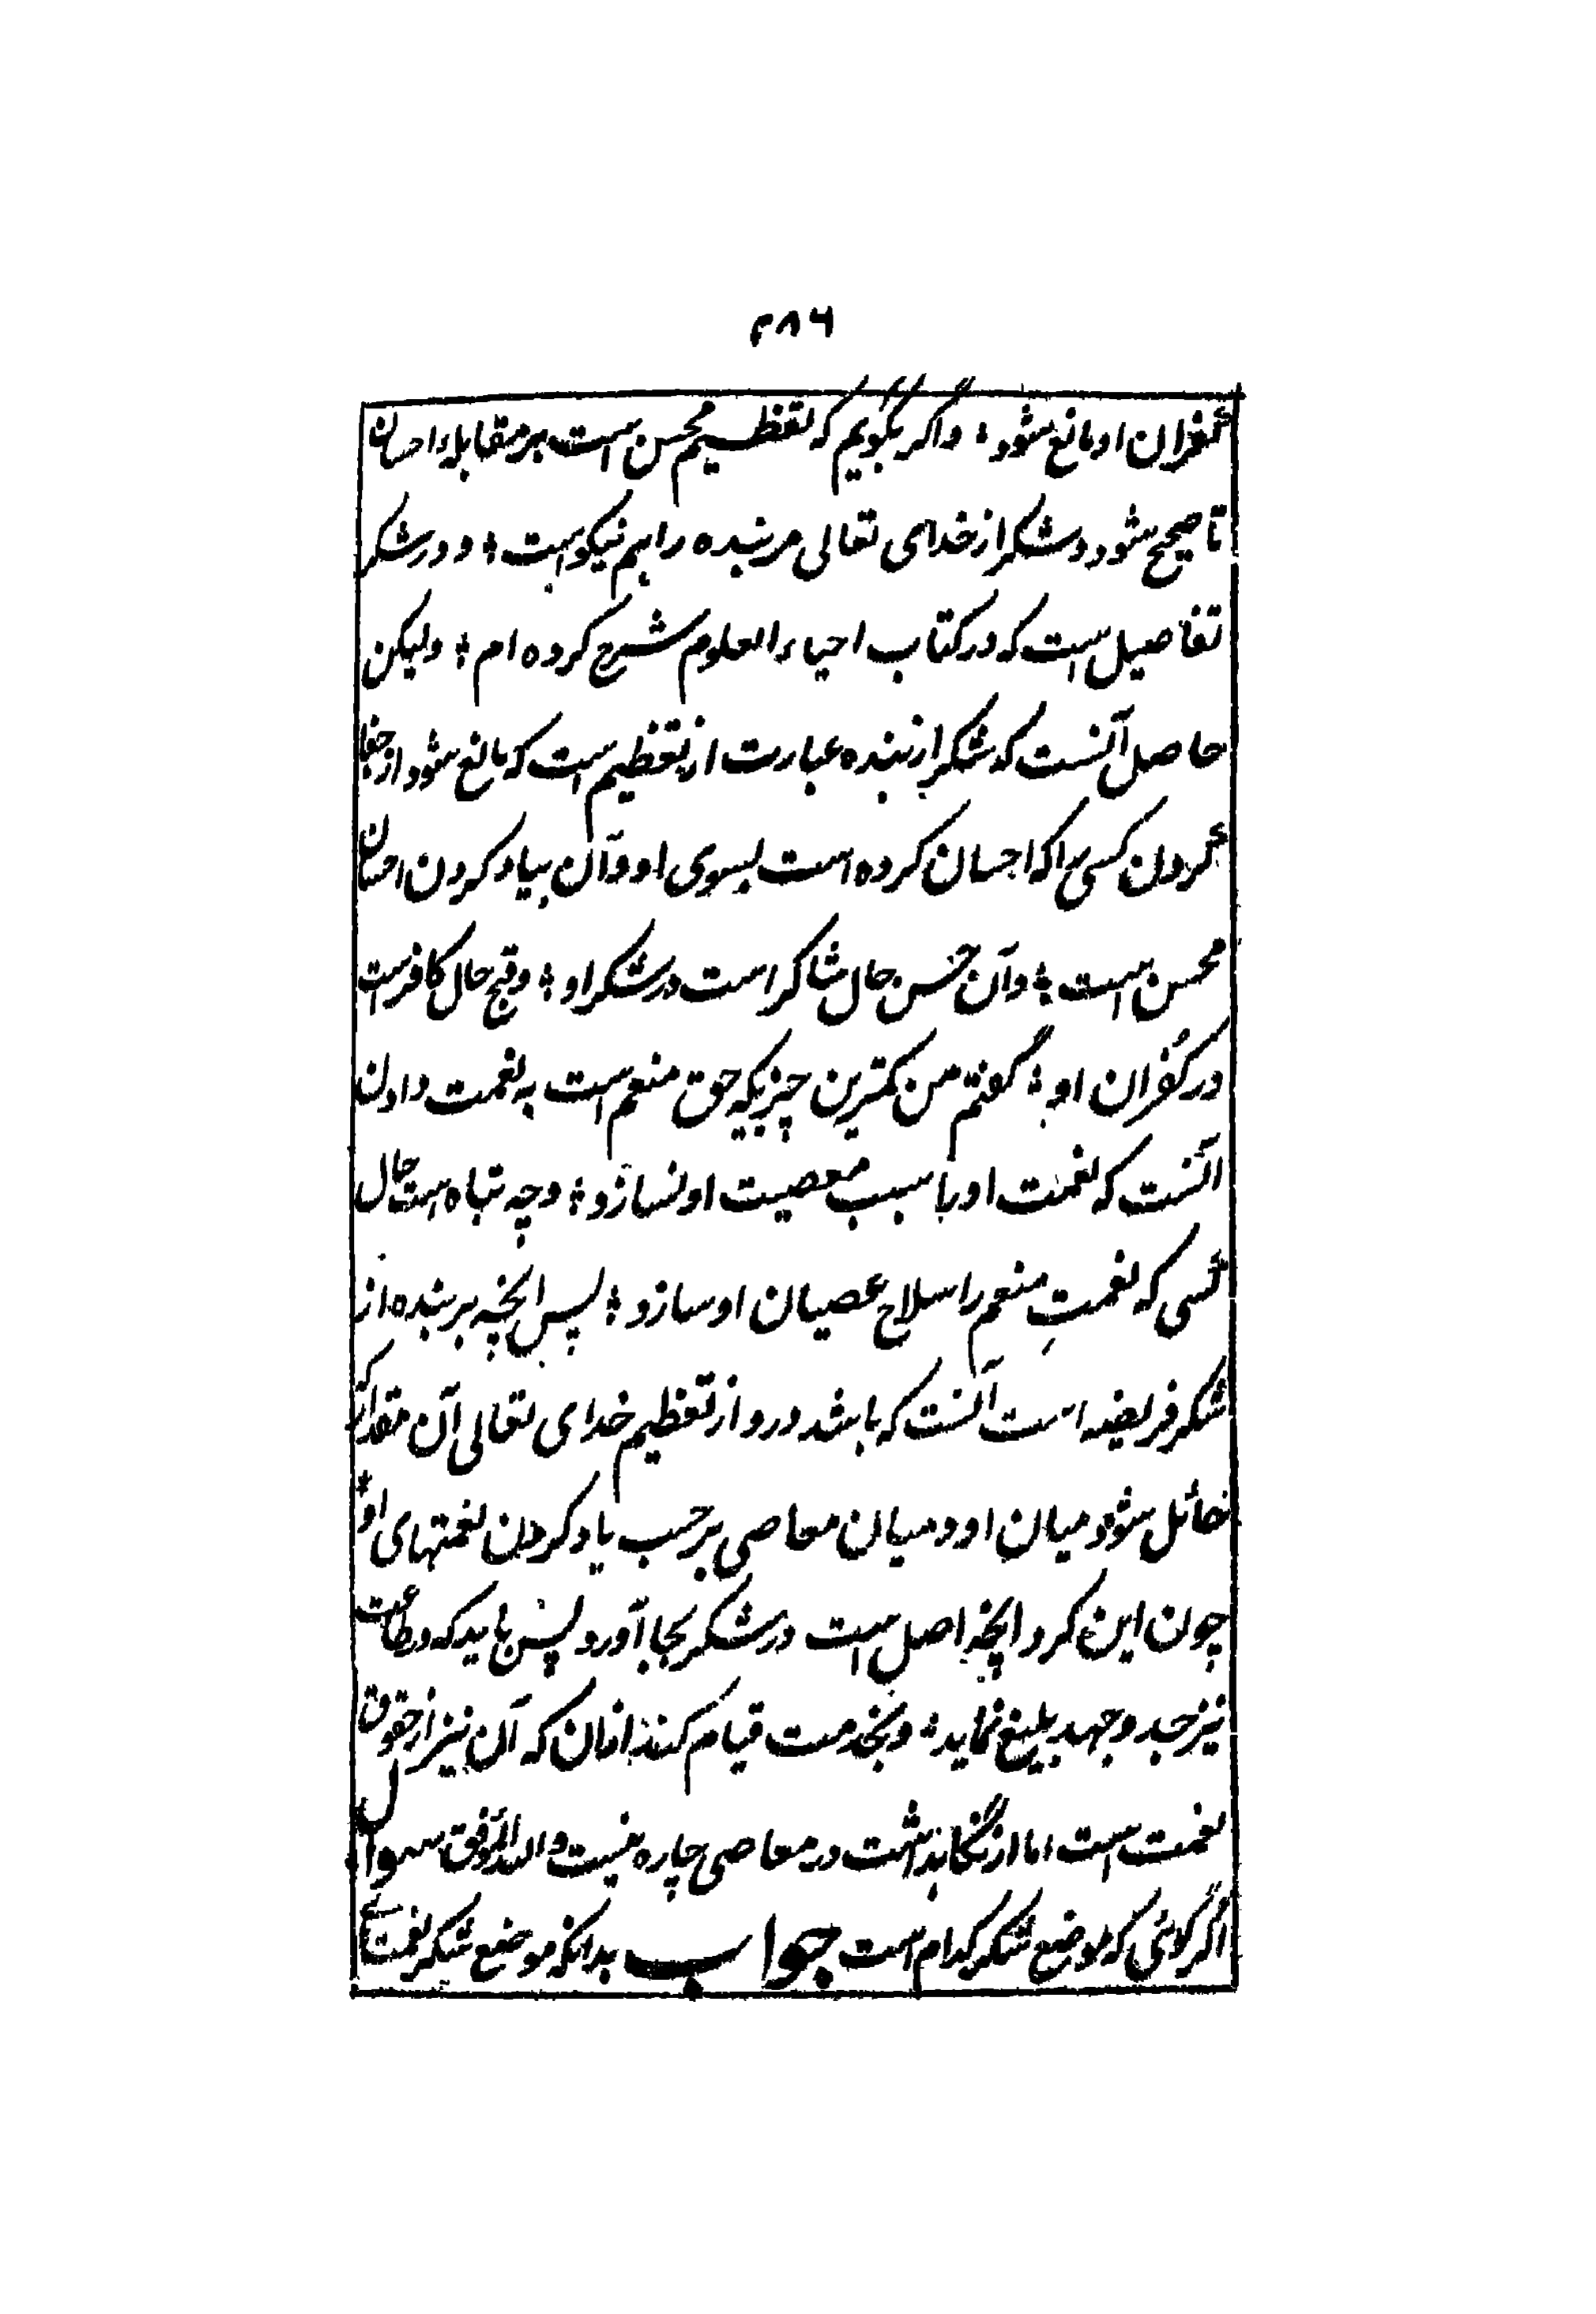 ۲۸۶
کفران او مانع شود؛ واگر بگویم که تعظیم محسن است بر مقابله احسان
تا صحیح شود و شکر از خدای تعالی مر بنده را هم نیکو است؛ و در شکر
تفاصیل است که در کتاب احیاء العلوم شرح کرده ام؛ ولیکن
حاصل آنست که شکر از بنده عبارت از تعظیم است که مانع شود از جفا
کردن کسی را که احسان کرده است بسوی او و آن بیاد کردن احسان
محسن است؛ و آن حسن حال شاکر است در شکر او؛ و قبح حال کافر است
در کفران او؛ گفتم من کمترین چیزیکه حق منعم است به نعمت دادن
آنست که نعمت او با سبب معصیت او نسازد؛ و چه تباه است حال
کسی که نعمتِ منعم را سلاح عصیان او سازد؛ پس انچه بر بنده از
شکر فریضه است آنست که باشد درو از تعظیم خدای تعالی آن مقدار که
حائل شود میان او و میان معاصی بر حسب یاد کردن نعمتهای او
چون این کرد انچه اصل است در شکر بجا آورد پس باید که در طاعت
نیز جد و جهد بلیغ نماید؛ و بخدمت قیام کند ازان که آن نیز از حقوق
نعمت است اما از نگاهداشت در معاصی چاره نیست والله الموفق سوال
اگر گوئی که موضع شکر کدام است جواب بدانکه موضع شکر نعمتهای